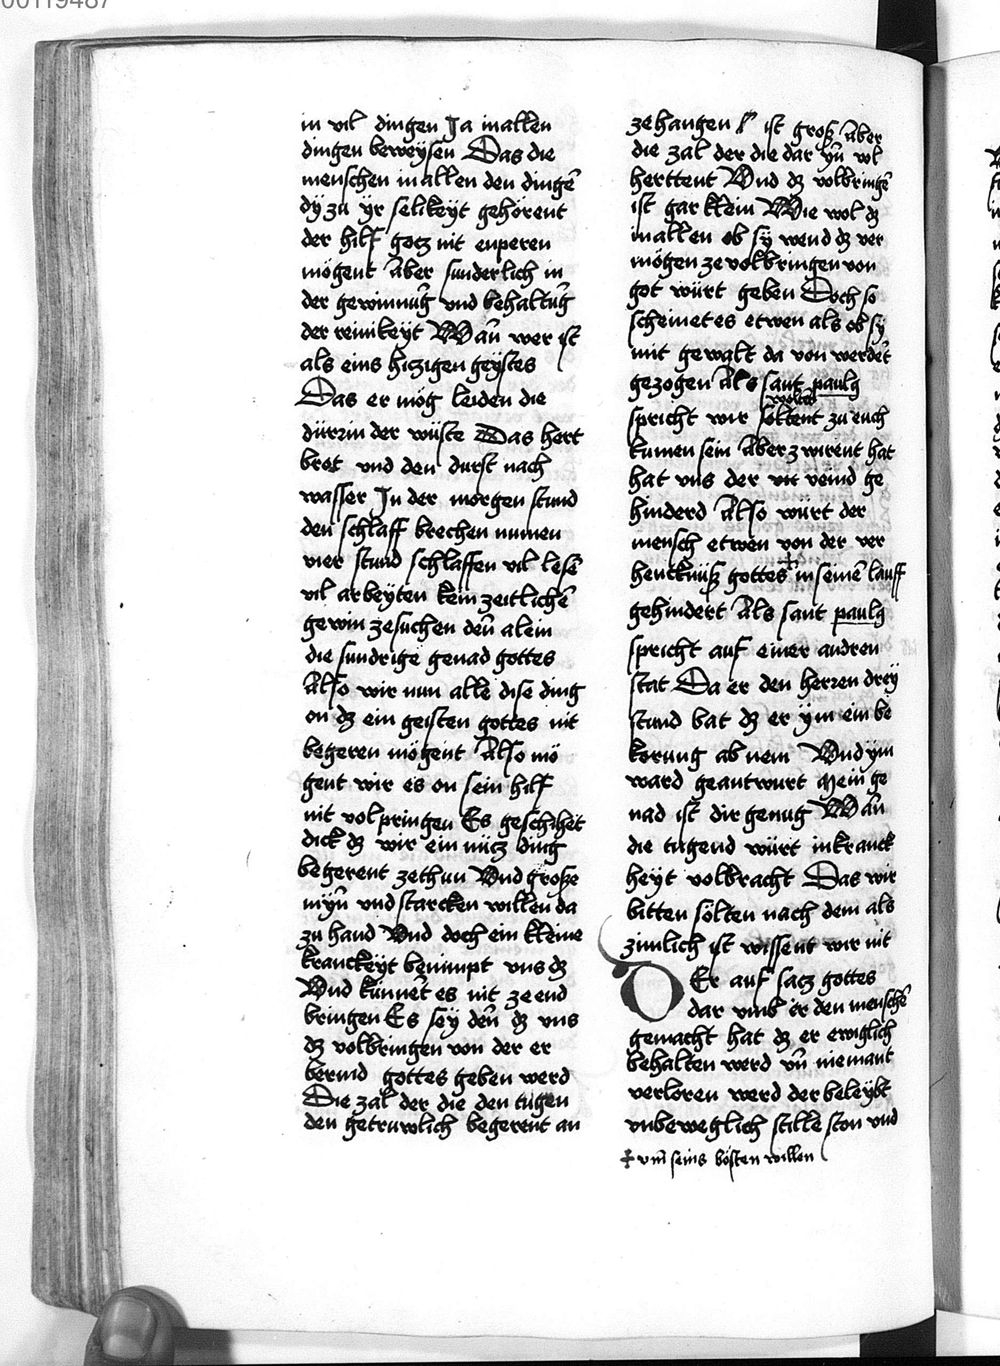 00119487
in vil dingen Ja in allen
dingen beweysen Das die
menschen in allen den dingē
dy zu yr selikeyt gehörent
der hilf gotz nit enperen
mögent Aber sunderlich in
der gewinnūg vnd behaltūg
der reinikeyt Wān wer ist
als eins hiczigen geystes
Das er mög leiden die
dürr in der wüste Das hert
brot vnd den durst nach
wasser Jn der morgen stund
den schlaff brechen nümen
vier stund schlaffen vil lesē
vil arbeyten kein zeitlichē
gewin ze suchen deñ alein
die sundrige genad gottes
Also wir nun alle dise ding
on dz ein geisten gottes nit
begeren mögent Also mö
gent wir es on sein hilf
nit volpringen Es geschihet
dick dz wir ein nücz ding
begerent ze thun Vnd große
mỹn vnd starcken willen da
zu hand Vnd doch ein kleine
kranckeyt benimpt vns dz
Vnd künnēt es nit ze end
bringen Es sey deñ dz vns
dz volbringen von der er
bermd gottes geben werd
Die zal der die den tugen
den getruwlich begerent an
ze hangen ist groß Aber
die zal der die dar yn̄ vol
herttent Vnd dz volbringē
ist gar klein Wie wol dz
in allen ob sy wend dz ver
mögen ze volbringen von
got würt geben Doch so
scheinet es etwen als ob sy
mit gewalt da von werdēt
gezogen Als sant paulꝯ
wolten
spricht wir söltent zu euch
kumen sein Aber zwirent hat
hat vns der vit veind ge
hinderd Also wurt der
mensch etwen von der ver
hencknüß gottes ☩ in seinē lauff
gehindert Als sant paulꝯ
spricht auf einer andren
stat Da er den herren drey
stund bat dz er ym ein be
korung ab nem Vnd ym
ward geantwurt Mein ge
nad ist dir genug Wān
die tugend würt in kranck
heyt volbracht Das wir
bitten sölten nach dem als
zimlich ist wissent wir nit
DEr auf sacz gottes
dar vmb er den menschē
gemacht hat dz er ewiglich
behalten werd vn̄ niemant
verloren werd der beleybt
vnbeweglich stille ston vnd
☩ vm̄ seins bösten willen